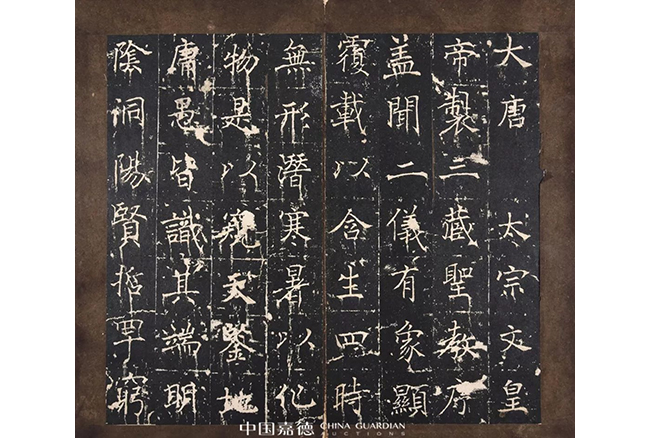 大唐 太宗文皇
帝製三藏聖教序
盖聞二儀有象顯
覆載以含生四時
無形潛寒暑以化
物是以窺天鑒地
庸愚皆識其端明
陰洞陽賢哲罕窮
中国嘉德 CHINA GUARDIAN
AUCTIONS